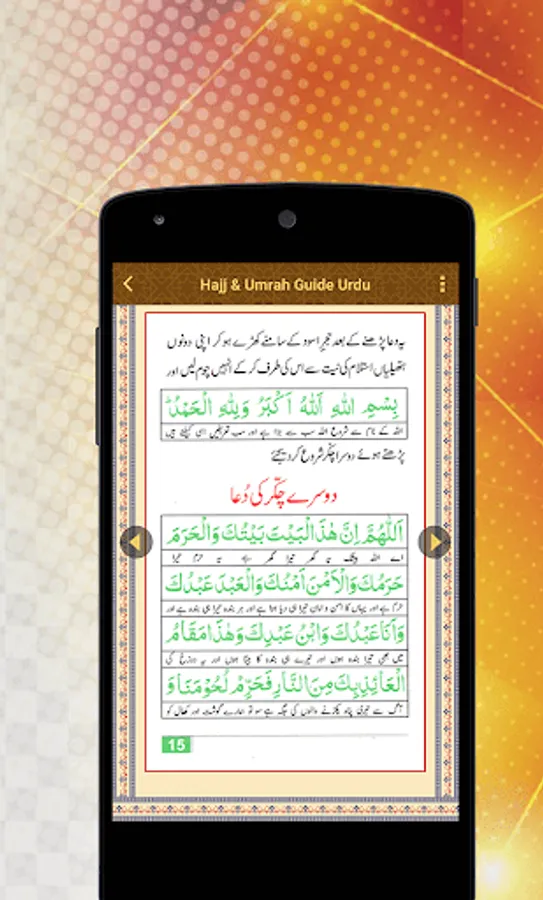 Hajj & Umrah Guide Urdu
یہ دعا پڑھنے کے بعد حجرِ اسود کے سامنے کھڑے ہو کر اپنی دونوں
ہتھیلیاں استلام کی نیت سے اس کی طرف کر کے انہیں چوم لیں اور
بِسْمِ اللّٰهِ اَللّٰهُ اَكْبَرُ وَلِلّٰهِ الْحَمْدُ ط
اللہ کے نام سے شروع اللہ سب سے بڑا ہے اور سب تعریفیں اسی کیلئے ہیں
پڑھتے ہوئے دوسرا چکر شروع کر دیجئے
دوسرے چکّر کی دُعا
اَللّٰهُمَّ اِنَّ هٰذَا الْبَيْتَ بَيْتُكَ وَالْحَرَمَ
اے اللہ بیشک یہ گھر تیرا گھر ہے یہ حرم تیرا
حَرَمُكَ وَالْاَمْنَ اَمْنُكَ وَالْعَبْدَ عَبْدُكَ
حرم ہے اور یہاں کا امن و امان تیرا ہی دیا ہوا ہے اور ہر بندہ تیرا ہی بندہ ہے اور
وَاَنَا عَبْدُكَ وَابْنُ عَبْدِكَ وَهٰذَا مَقَامُ
میں بھی تیرا بندہ ہوں اور تیرے ہی بندہ کا بیٹا ہوں اور یہ دوزخ کی
الْعَائِذِ بِكَ مِنَ النَّارِ فَحَرِّمْ لُحُوْمَنَا وَ
آگ سے تیری پناہ پکڑنے والوں کی جگہ ہے سو تو ہمارے گوشت اور کھال کو
15